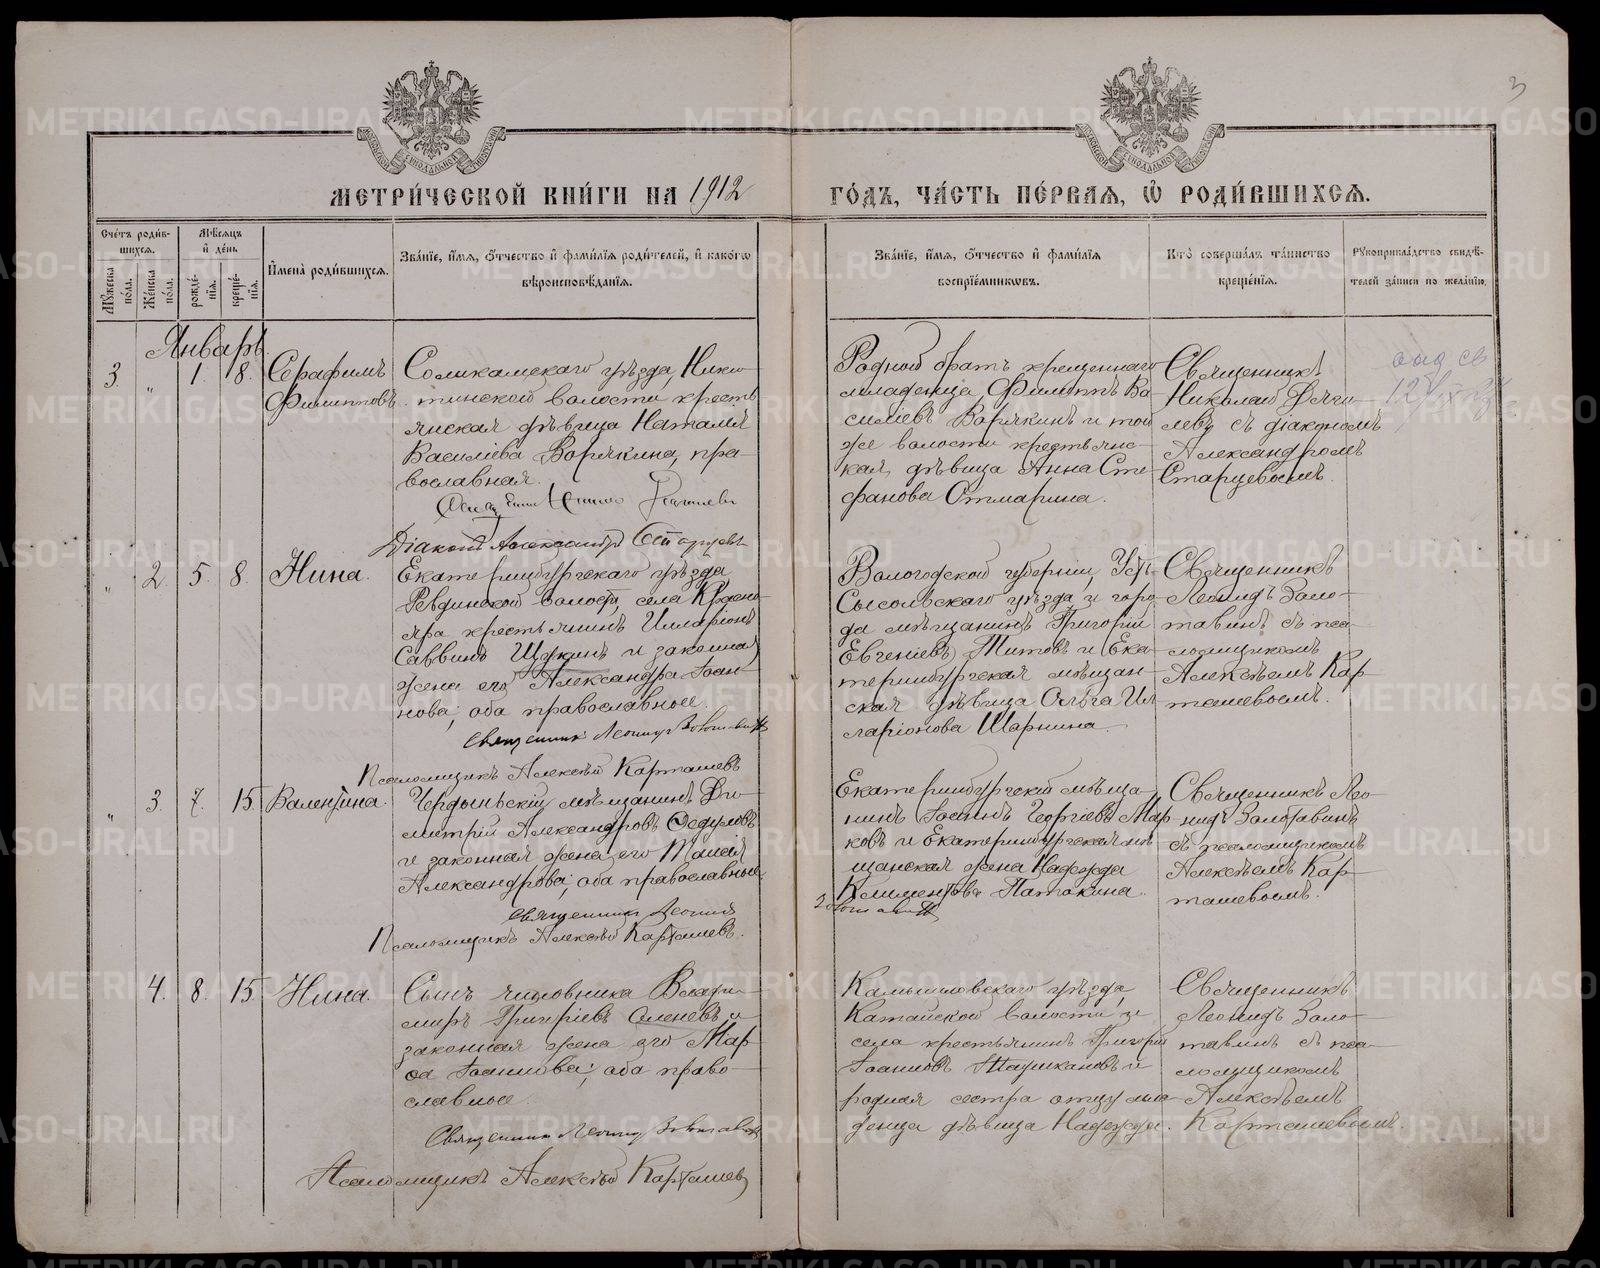 3
МЕТРИ́ЧЕСКОЙ КНИ́ГИ НА 1912 ГО́ДЪ, ЧА́СТЬ ПЕ́РВАЯ, Ѡ҆ РОДИ́ВШИХСЯ.
Сче́тъ роди́вшихся.
Мꙋ́жеска по́ла.
Же́нска по́ла.
Мѣ́сяцъ и҆ де́нь
рожде́нїя.
креще́нїя.
И҆мена̀ роди́вшихся.
Зва́нїе, и҆́мя, ѻ҆́тчество и҆ фами́лїя роди́телей, и҆ како́гѡ
вѣроисповѣ́данїя.
Зва́нїе, и҆́мя, ѻ҆́тчество и҆ фами́лїя
воспрїе́мникѡвъ.
Кто̀ соверша́лъ та́инство
креще́нїя.
Рꙋкоприкла́дство свидѣ́-
телей за́писи по жела́нїю.
Январь.
3.
"
1.
8.
Серафимъ
Филипповъ.
Соликамскаго уѣзда, Ники-
тинской волости кресть-
янская дѣвица Наталія
Василіева Ворякина, пра-
вославная.
Діаконъ Александръ Старцевъ
Родной братъ крещеннаго
младенца, Филиппъ Ва-
силіевъ Ворякинъ и той
же волости крестьянс-
кая дѣвица Анна Сте-
фанова Отмарина.
Священникъ
Николай
левъ съ діакономъ
Александромъ
Старцевымъ.
"
2.
5.
8.
Нина.
Екатеринбургскаго уѣзда
Ревдинской волости, села Красно-
яра крестьянинъ Илларіонъ
Саввинъ Щукинъ и законная
жена его Александра Іоан-
нова, оба православные.
Священникъ Леонидъ Золотавинъ
Псаломщикъ Алексѣй Карташевъ
Вологодской губерніи, Усть-
Сысольскаго уѣзда и горо-
да мѣщанинъ Григорій
Евгеніевъ Титовъ и Ека-
теринбургская мѣщан-
ская дѣвица Ольга Ил-
ларіонова Шарнина.
Священникъ
Леонидъ Золо-
тавинъ съ пса-
ломщикомъ
Алексѣемъ Кар-
ташевымъ.
"
3.
7.
15.
Валентина.
Чердынскій мѣщанинъ Ди-
митрій Александровъ Федуловъ
и законная жена его Таисія
Александрова; оба православные.
Священникъ Леонидъ Золотавинъ
Псаломщикъ Алексѣй Карташевъ.
Екатеринбургскій мѣща-
нинъ Іоаннъ Георгіевъ Мар-
ковъ и Екатеринбургская мѣ-
щанская жена Надежда
Климентова Патокина.
Священникъ Лео-
нидъ Золотавинъ
съ псаломщикомъ
Алексѣемъ Кар-
ташевымъ.
4.
8.
15.
Нина.
Сынъ чиновника Влади-
миръ Григоріевъ Оленевъ и
законная жена его Мар-
ѳа Іоаннова; оба право-
славные.
Священникъ Леонидъ Золотавинъ
Псаломщикъ Алексѣй Карташевъ
Камышловскаго уѣзда,
Катайской волости и
села крестьянинъ Григорій
Іоанновъ и
родная сестра отцу мла-
денца дѣвица Надежда.
Священникъ
Леонидъ Золо-
тавинъ съ пса-
ломщикомъ
Алексѣемъ
Карташевымъ.
METRIKI.GASO-URAL.RU